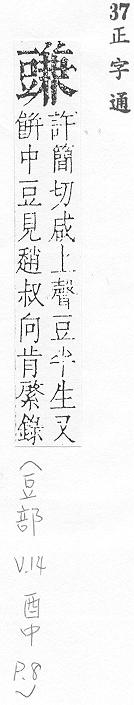 37 正字通
豏
許簡切咸上聲豆半生又
餠中豆見趙叔向肯綮錄
(豆部 V.14 酉中 P.8)